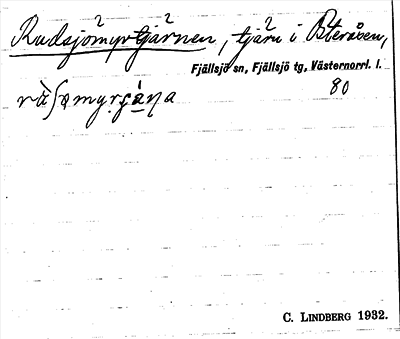 Radsjömyrtjärnen, tjärn i Österåsen,
Fjällsjö sn, Fjällsjö tg, Västernorrl. l.
80
C. LINDBERG 1932.